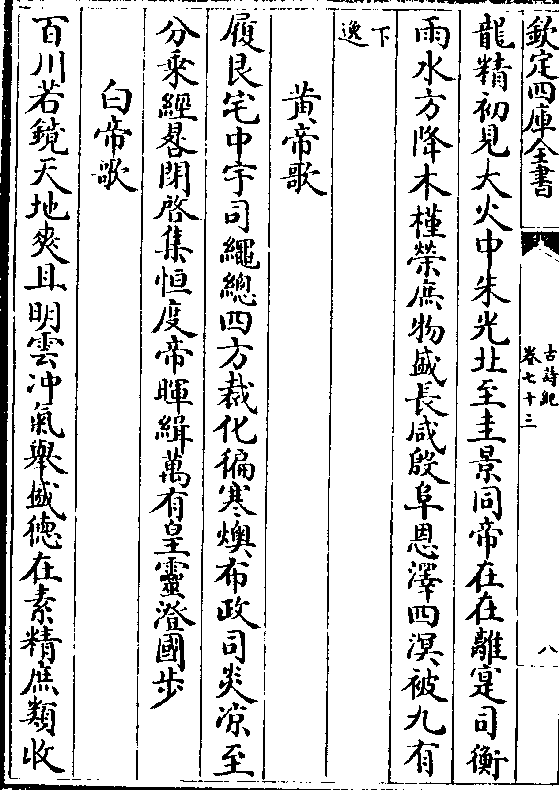 欽定四庫全書
古詩紀
卷七十三
八
龍精初見大火中朱光北至圭景同帝在在離寔司衡
雨水方降木槿榮庶物盛長咸殷阜恩澤四溟被九有
下逸
黄帝歌
履艮宅中宇司繩總四方裁化徧寒燠布政司炎凉至
分乘經晷閉啓集恒度帝暉緝萬有皇靈澄國步
白帝歌
百川若鏡天地爽且明雲冲氣舉盛德在素精庶類收